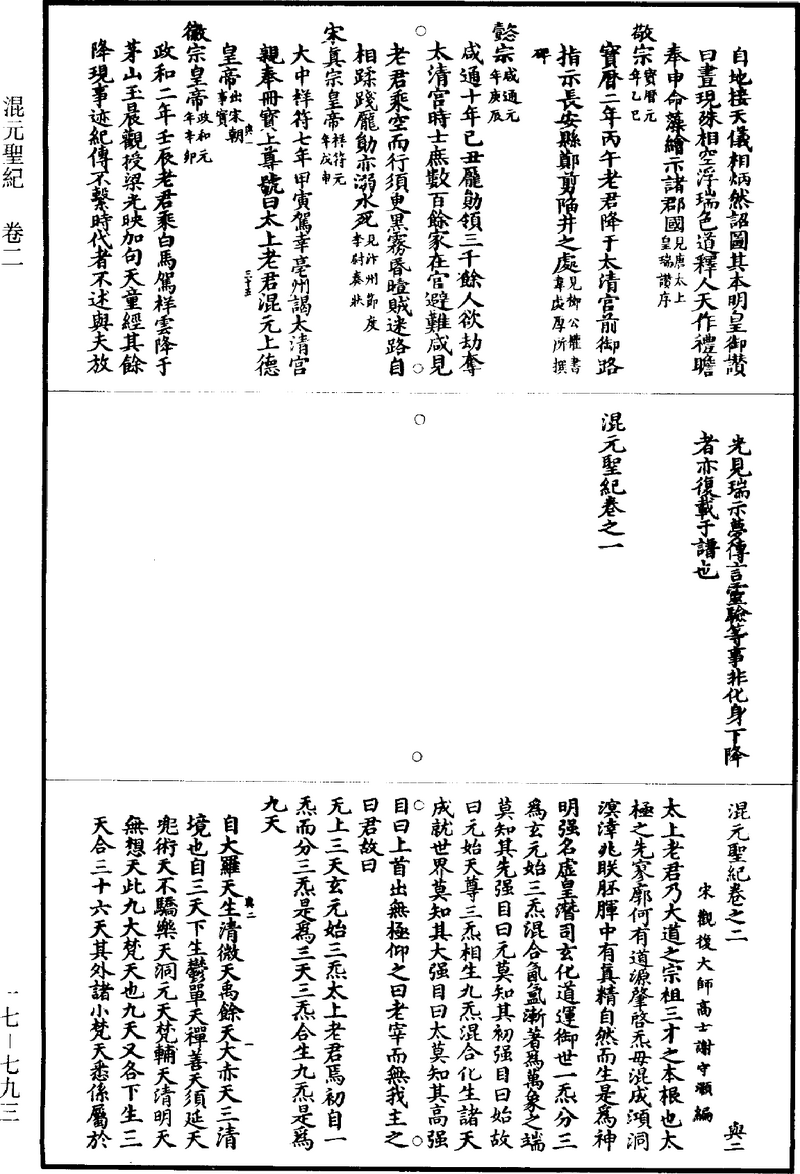 自地接天儀相炳然詔圖其本明皇御讃
曰晝現殊相空浮瑞色道釋人天作禮瞻
奉申命藻繪示諸郡國見唐太上皇瑞讃序
敬宗寶曆元年乙巳
寶曆二年丙午老君降于太清宮前御路
指示長安縣鄭剪陥井之處見柳公權書韋處厚所撰
碑
懿宗咸通元年庚辰
咸通十年己丑龎勛領三千餘人欲劫奪
太清宮時士庶數百餘家在宮避難咸見
老君乘空而行須臾黒霧昏暄賊迷路自
相蹂踐龎勛亦溺水死見汴州節度李尉奏狀
宋真宗皇帝祥符元年戊申
大中祥符七年甲寅駕幸亳州謁太清宮
親奉冊寶上尊號曰太上老君混元上德
皇帝出宋朝事實
與一
三十五
徽宗皇帝政和元年辛卯
政和二年壬辰老君乘白馬駕祥雲降于
茅山玉晨觀授梁光映加句天童經其餘
降現事迹紀傳不繫時代者不述與夫放
光見瑞示夢傳言靈驗等事非化身下降
者亦復載于譜也
混元聖紀卷之一
混元聖紀卷之二
與二
宋觀復大師高士謝守灝編
太上老君乃大道之宗祖三才之本根也太
極之先寂寥何有道源肇啓炁母混成澒洞
溟涬兆朕胚腪中有真精自然而生是爲神
明强名虛皇潛司玄化道運御世一炁分三
爲玄元始三炁混合氤氳漸著爲萬象之端
莫知其先强目曰元莫知其初强目曰始故
曰元始天尊三炁相生九炁混合化生諸天
成就世界莫知其大强目曰太莫知其高强
目曰上首出無極仰之曰老宰而無我主之
曰君故曰
无上三天玄元始三炁太上老君焉初自一
炁而分三炁是爲三天三炁合生九炁是爲
九天
與二
一
自大羅天生清微天禹餘天大亦天三清
境也自三天下生鬱單天禪善天須延天
兜術天不驕樂天洞元天梵輔天清明天
無想天此九大梵天也九天又各下生三
天合三十六天其外諸小梵天悉係屬於
混元聖紀 卷二
一七－七九三